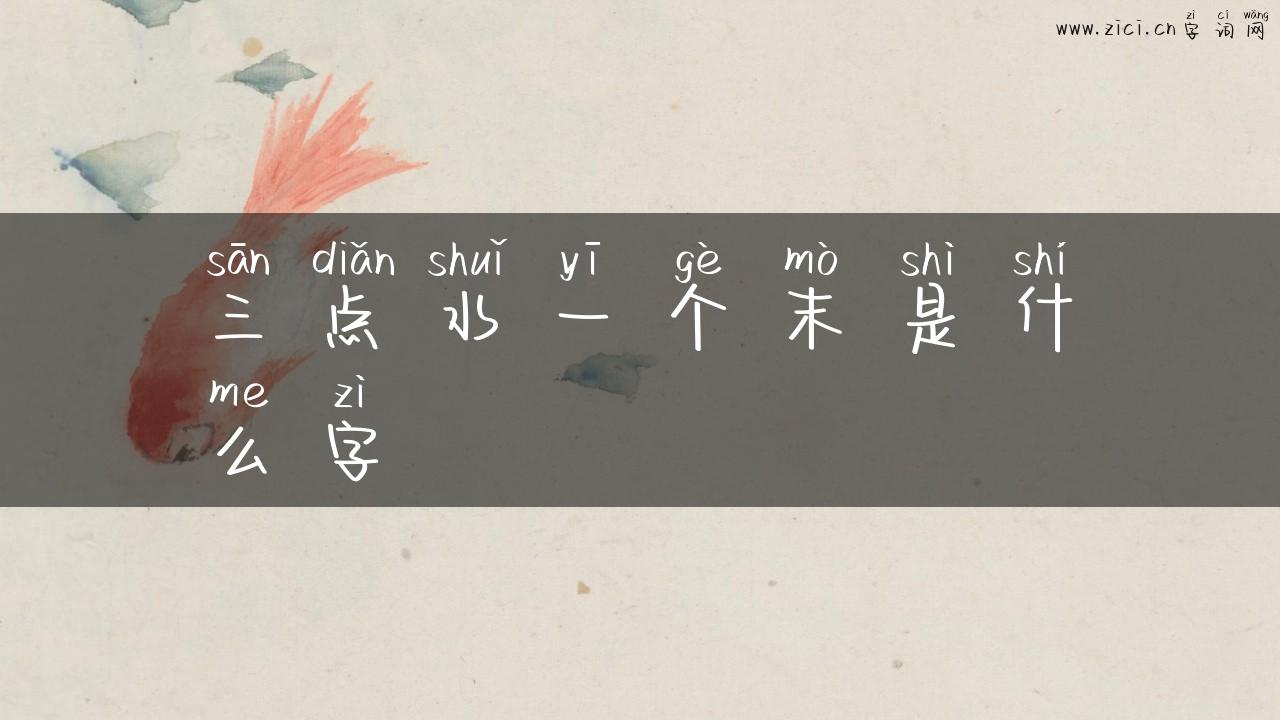 zì cí wǎng
www.zici.cn 字 词 网
sān diǎn shuǐ yī gè mò shì shí
三 点 水 一 个 末 是 什
me zì
么 字